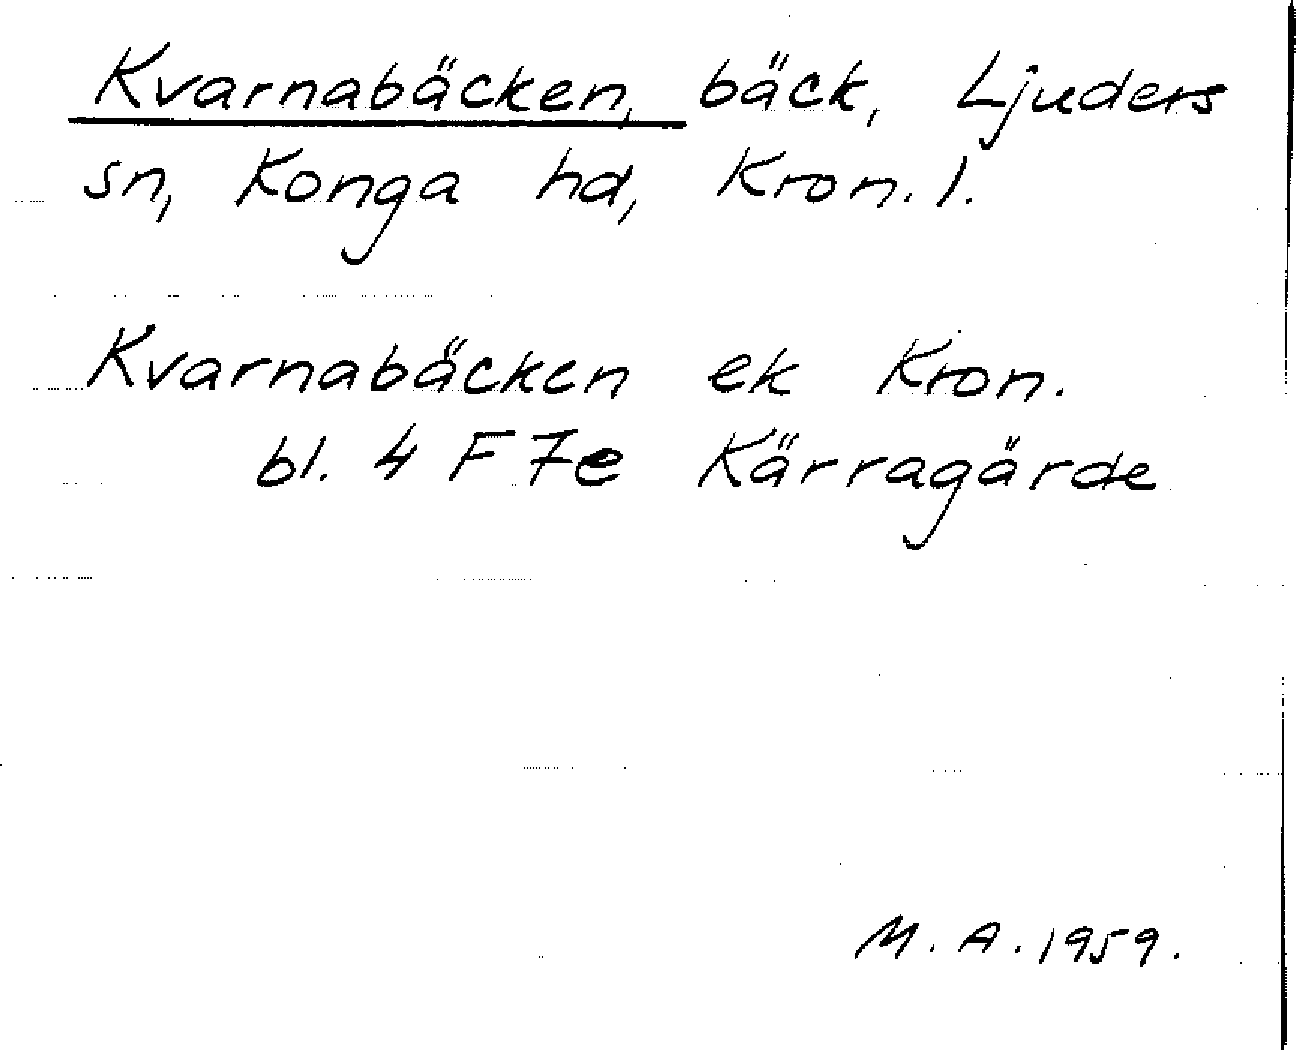 Kvarnabäcken, bäck, Ljuders
sn, Konga hd, Kron. l.
Kvarnabäcken ek Kron.
bl. 4 F 7e Kärragärde
M. A. 1959.